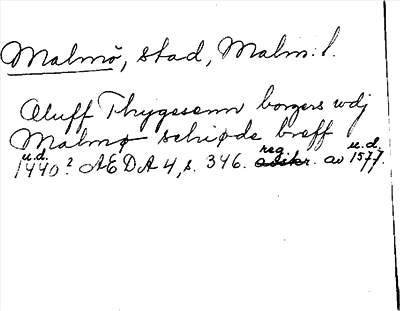 Malmö, stad, Malm. l.
Aluff Thygesenn borgers wdj
Malmø schiøde breff
u.d.
1440? AEDA 4, s. 346. reg. av u.d. 1577.